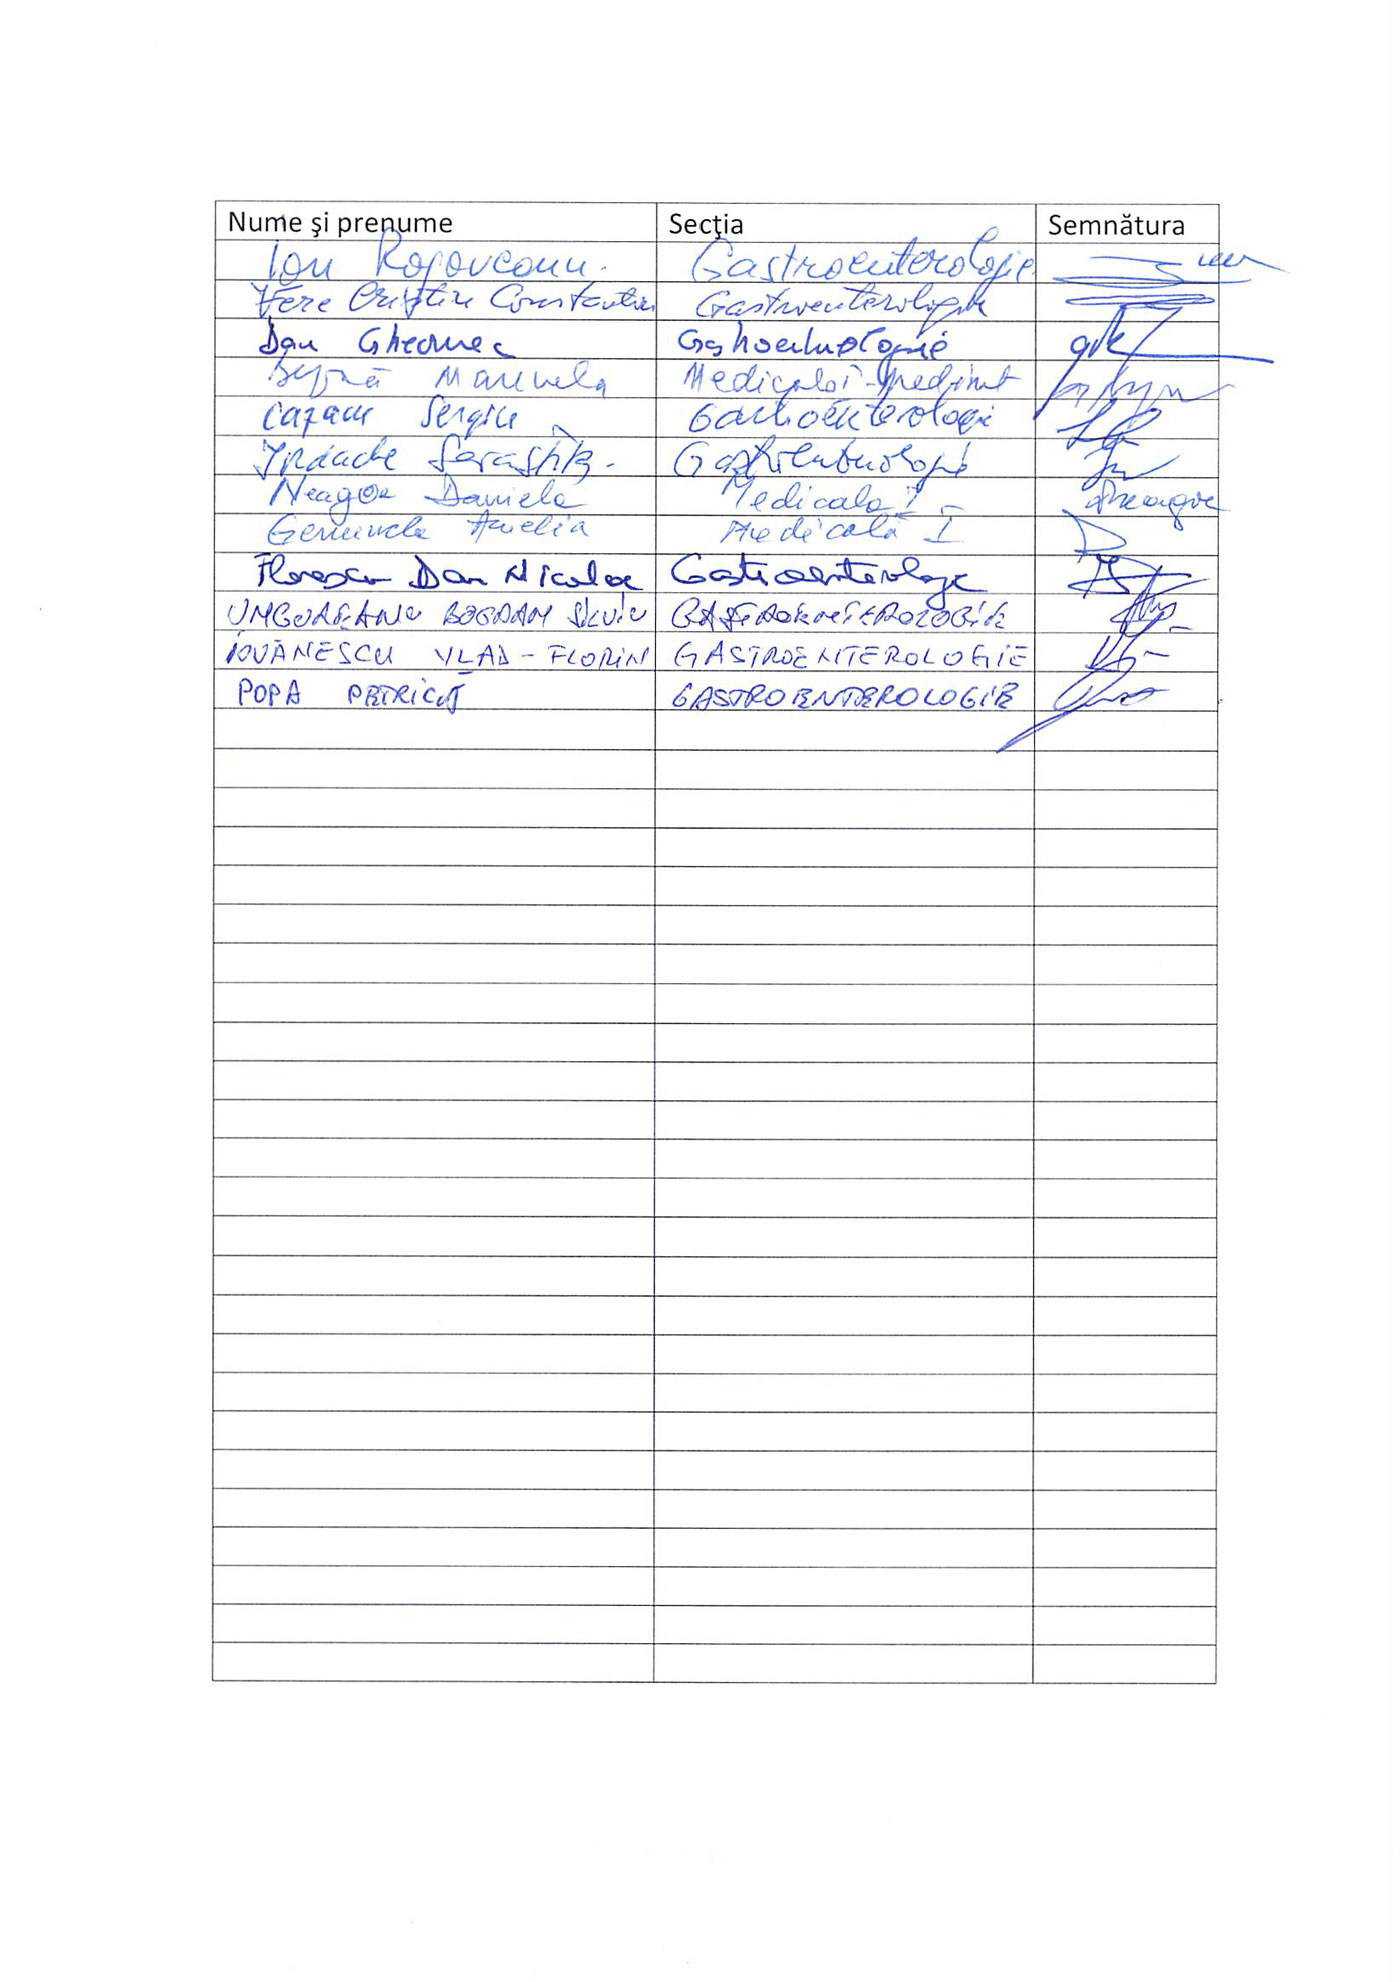 Nume şi prenume Secţia Semnătura
Ion Rogoveanu. Gastroenterologie
Vere Cristin Constantin Gastroenterologie
Dan Gheonea Gastroenterologie
Manuela Medicala I
Cazacu Sergiu Gastroenterologie
Iordache Sevastița. Gastroenterologie
Neagoe Daniela Medicala I Neagoe
Genunche Amelia Medicală I
Florescu Dan Nicolae Gastroenterologie
UNGUREANU BOGDAN SILVIU GASTROENTEROLOGIE
IOVĂNESCU VLAD-FLORIN GASTROENTEROLOGIE
POPA PETRICĂ GASTROENTEROLOGIE